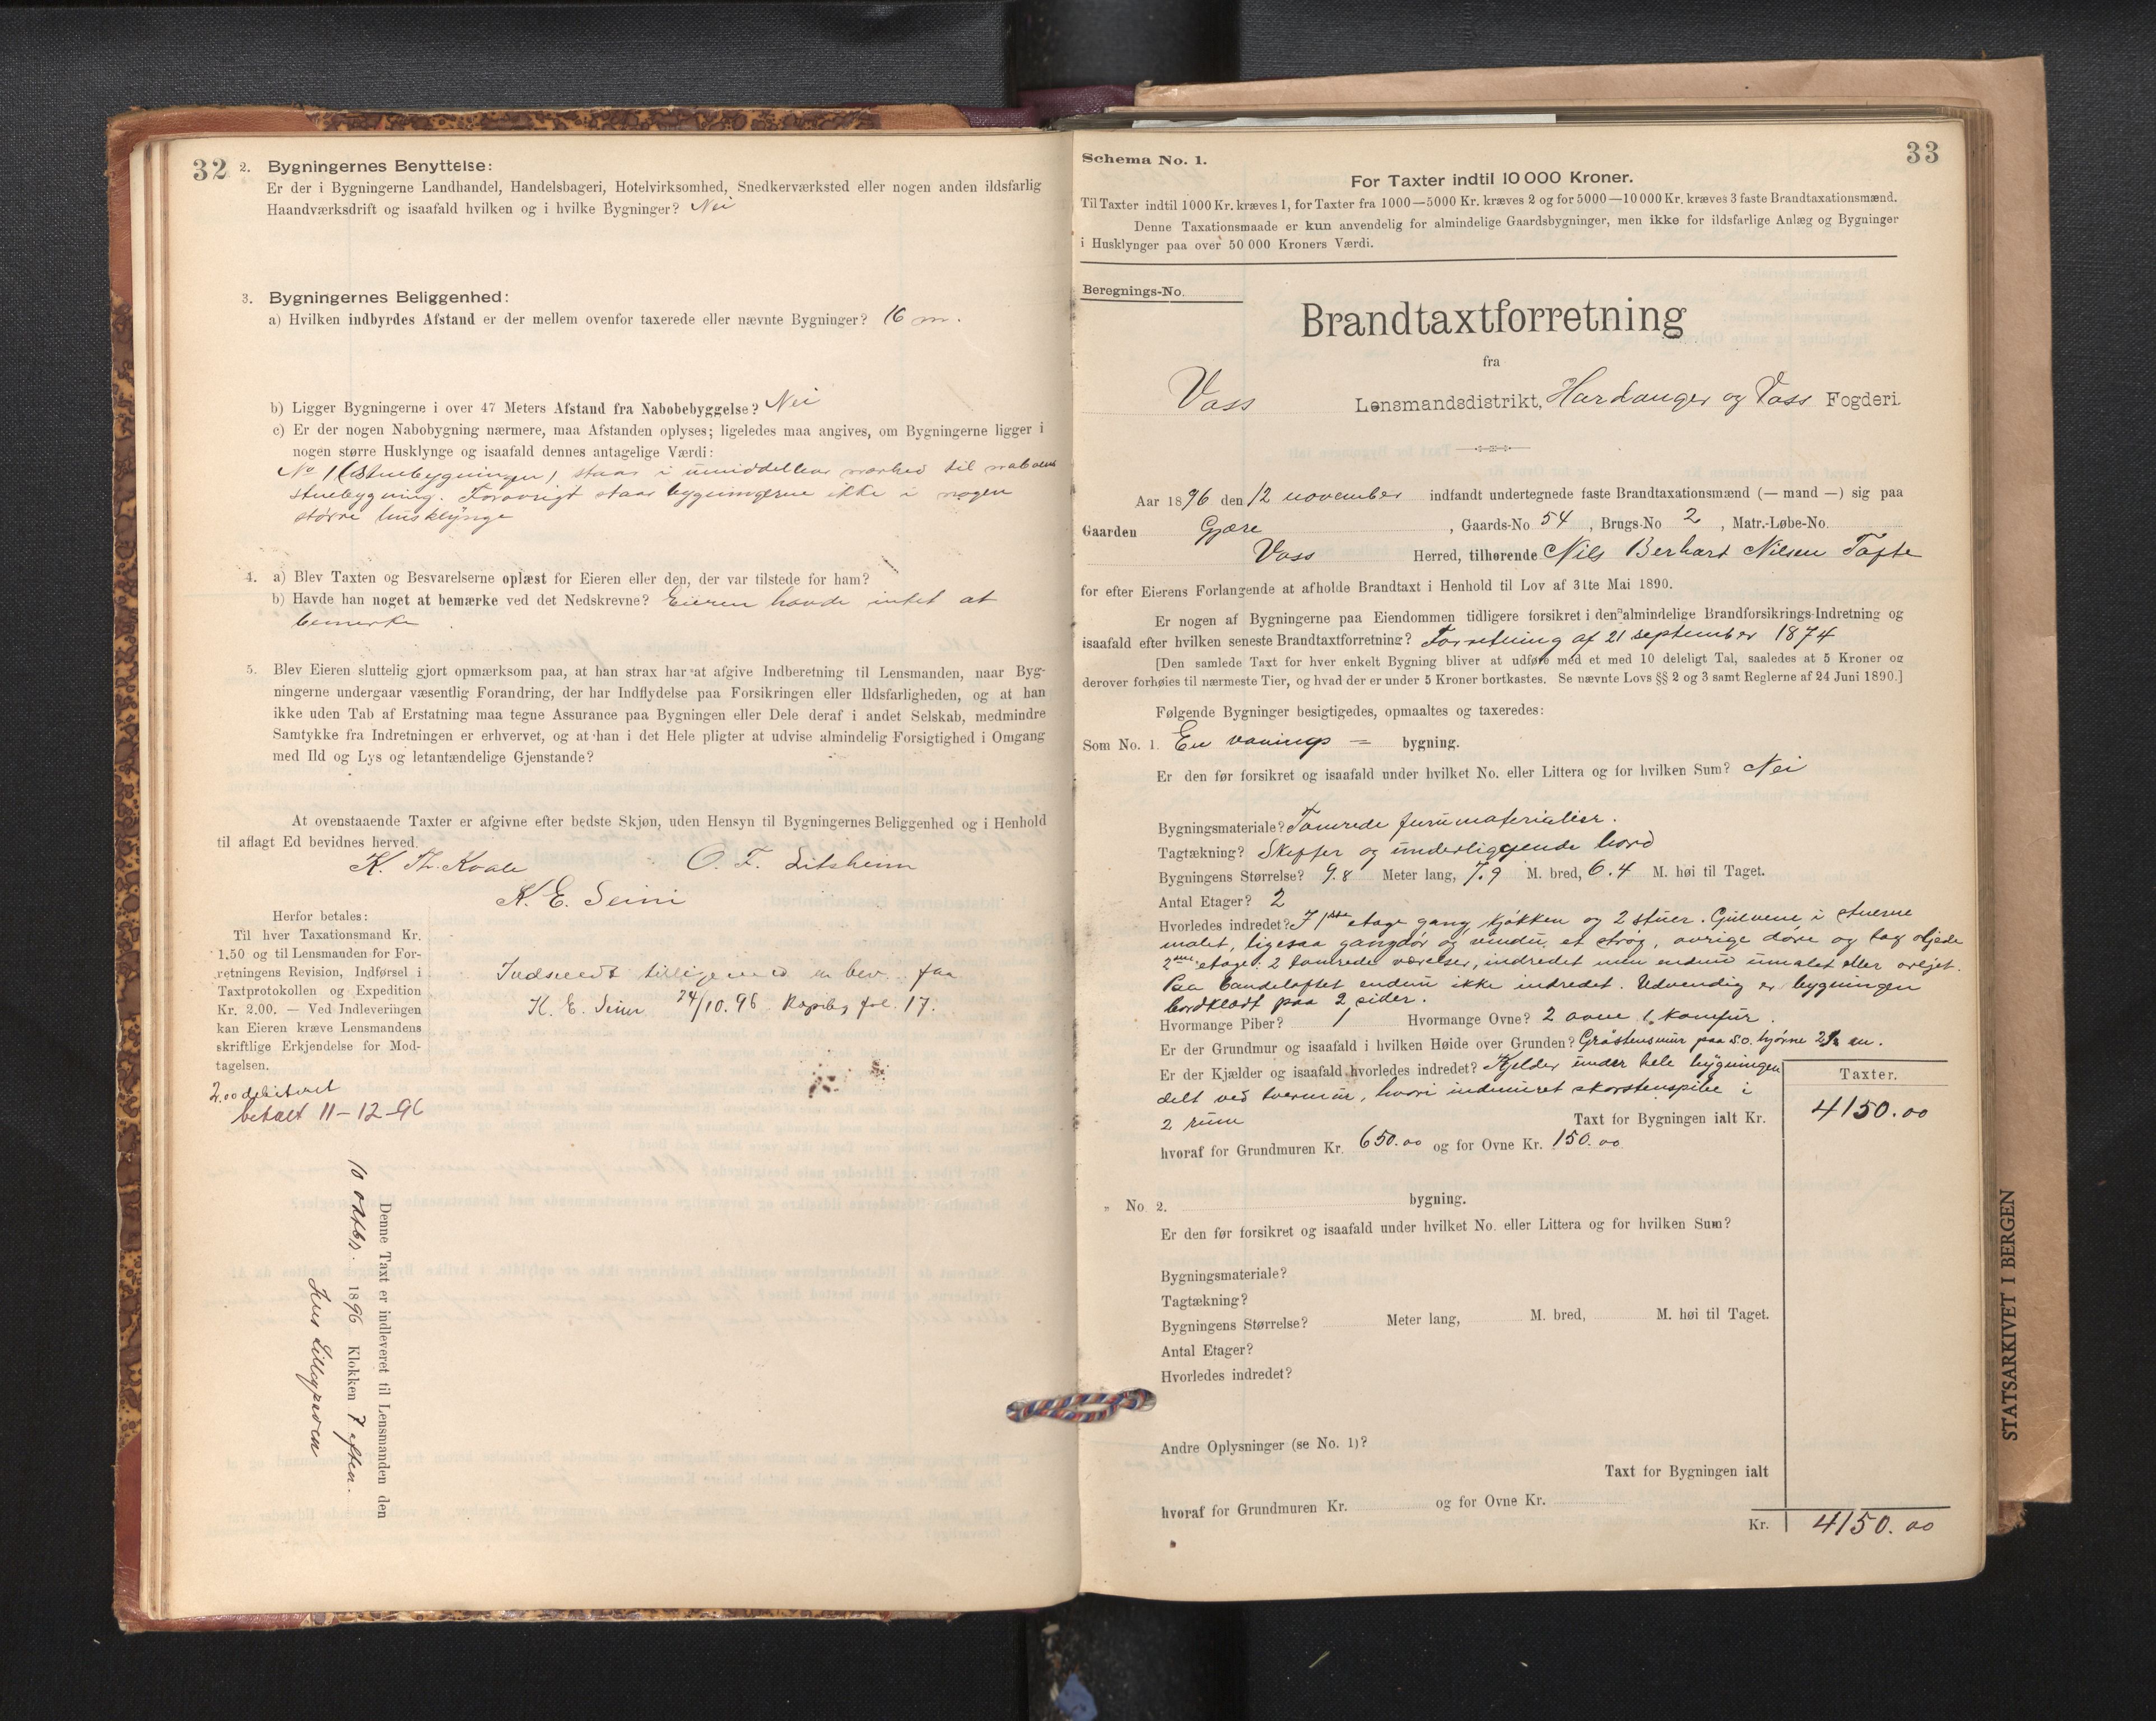 32
2. Bygningernes Benyttelse:
Er der i Bygningerne Landhandel, Handelsbageri, Hotelvirksomhed, Snedkerværksted eller nogen anden ildsfarlig
Haandværksdrift og isaafald hvilken og i hvilke Bygninger? Nei
3. Bygningernes Beliggenhed:
a) Hvilken indbyrdes Afstand er der mellem ovenfor taxerede eller nævnte Bygninger? 16 m.
b) Ligger Bygningerne i over 47 Meters Afstand fra Nabobebyggelse? Nei
c) Er der nogen Nabobygning nærmere, maa Afstanden oplyses; ligeledes maa angives, om Bygningerne ligger i
nogen større Husklynge og isaafald dennes antagelige Værdi:
No 1 (Stuebygningen) staar i umiddelbar nærhed til naboens
stuebygning. Forøvrigt staar bygningerne ikke i nogen
større husklynge
4. a) Blev Taxten og Besvarelserne oplæst for Eieren eller den, der var tilstede for ham?
b) Havde han noget at bemærke ved det Nedskrevne? Eieren havde intet at
bemerke
5. Blev Eieren sluttelig gjort opmærksom paa, at han strax har at afgive Indberetning til Lensmanden, naar Byg-
ningerne undergaar væsentlig Forandring, der har Indflydelse paa Forsikringen eller Ildsfarligheden, og at han
ikke uden Tab af Erstatning maa tegne Assurance paa Bygningen eller Dele deraf i andet Selskab, medmindre
Samtykke fra Indretningen er erhvervet, og at han i det Hele pligter at udvise almindelig Forsigtighed i Omgang
med Ild og Lys og letantændelige Gjenstande?
At ovenstaaende Taxter er afgivne efter bedste Skjøn, uden Hensyn til Bygningernes Beliggenhed og i Henhold
til aflagt Ed bevidnes herved.
K. Th. Kvale O. T. Litsheim
K. E. Seim
Herfor betales:
Til hver Taxationsmand Kr.
1.50 og til Lensmanden for For-
retningens Revision, Indførsel i
Taxtprotokollen og Expedition
Kr. 2.00. — Ved Indleveringen
kan Eieren kræve Lensmandens
skriftlige Erkjendelse for Mod-
tagelsen.
Indsendt tilligemed
K. E. Seim 24/10.96 Kopibog fol. 17.
2.00 debiteret
betalt 11-12-96
Denne Taxt er indleveret til Lensmanden den
10 oktbr. 1896 Klokken 7 aften.
Jens Lillegraven
33
Schema No. 1.
For Taxter indtil 10 000 Kroner.
Til Taxter indtil 1000 Kr. kræves 1, for Taxter fra 1000—5000 Kr. kræves 2 og for 5000—10 000 Kr. kræves 3 faste Brandtaxationsmænd.
Denne Taxationsmaade er kun anvendelig for almindelige Gaardsbygninger, men ikke for ildsfarlige Anlæg og Bygninger
i Husklynger paa over 50 000 Kroners Værdi.
Beregnings-No.
Brandtaxtforretning
fra
Voss Lensmandsdistrikt, Hardanger og Voss Fogderi.
Aar 1896 den 12 november indfandt undertegnede faste Brandtaxationsmænd (— mand —) sig paa
Gaarden Gjære, Gaards-No 54, Brugs-No 2, Matr.-Løbe-No.
Voss Herred, tilhørende Nils Berhart Nilsen Tafte
for efter Eierens Forlangende at afholde Brandtaxt i Henhold til Lov af 31te Mai 1890.
Er nogen af Bygningerne paa Eiendommen tidligere forsikret i den almindelige Brandforsikrings-Indretning og
isaafald efter hvilken seneste Brandtaxtforretning? Forretning af 21 september 1874
[Den samlede Taxt for hver enkelt Bygning bliver at udføre med et med 10 deleligt Tal, saaledes at 5 Kroner og
derover forhøies til nærmeste Tier, og hvad der er under 5 Kroner bortkastes. Se nævnte Lovs §§ 2 og 3 samt Reglerne af 24 Juni 1890.]
Følgende Bygninger besigtigedes, opmaaltes og taxeredes:
Som No. 1. En vaanings = bygning.
Er den før forsikret og isaafald under hvilket No. eller Littera og for hvilken Sum? Nei
Bygningsmateriale? Tømrede furumaterialier.
Tagtækning? Skiffer og underliggende bord
Bygningens Størrelse? 9.8 Meter lang, 7.9 M. bred, 6.4 M. høi til Taget.
Antal Etager? 2
Hvorledes indredet? I 1ste etage gang, kjøkken og 2 stuer. Gulvene i stuerne
malet, ligesaa gangdør og vindu, et strøg, øvrige døre og tag oljede
2den etage: 2 tømrede værelser, indredet men endnu umalet eller oljet.
Paa bandeloftet endnu ikke indredet. Udvendig er bygningen
bordklædt paa 2 sider.
Hvormange Piber? 1 Hvormange Ovne? 2 ovne 1 komfur.
Er der Grundmur og isaafald i hvilken Høide over Grunden? Gråstensmur paa s.o. hjørne 2½ m.
Er der Kjælder og isaafald hvorledes indredet? Kjelder under hele bygningen
delt ved tvermur, hvori indmuret skorstenspibe i
2 rum
Taxter.
Taxt for Bygningen ialt Kr. 4150.00
hvoraf for Grundmuren Kr. 650.00 og for Ovne Kr. 150.00
„ No. 2. bygning.
Er den før forsikret og isaafald under hvilket No. eller Littera og for hvilken Sum?
Bygningsmateriale?
Tagtækning?
Bygningens Størrelse? Meter lang, M. bred, M. høi til Taget.
Antal Etager?
Hvorledes indredet?
Andre Oplysninger (se No. 1)?
Taxt for Bygningen ialt
hvoraf for Grundmuren Kr. og for Ovne Kr.
Kr. 4150.00
STATSARKIVET I BERGEN